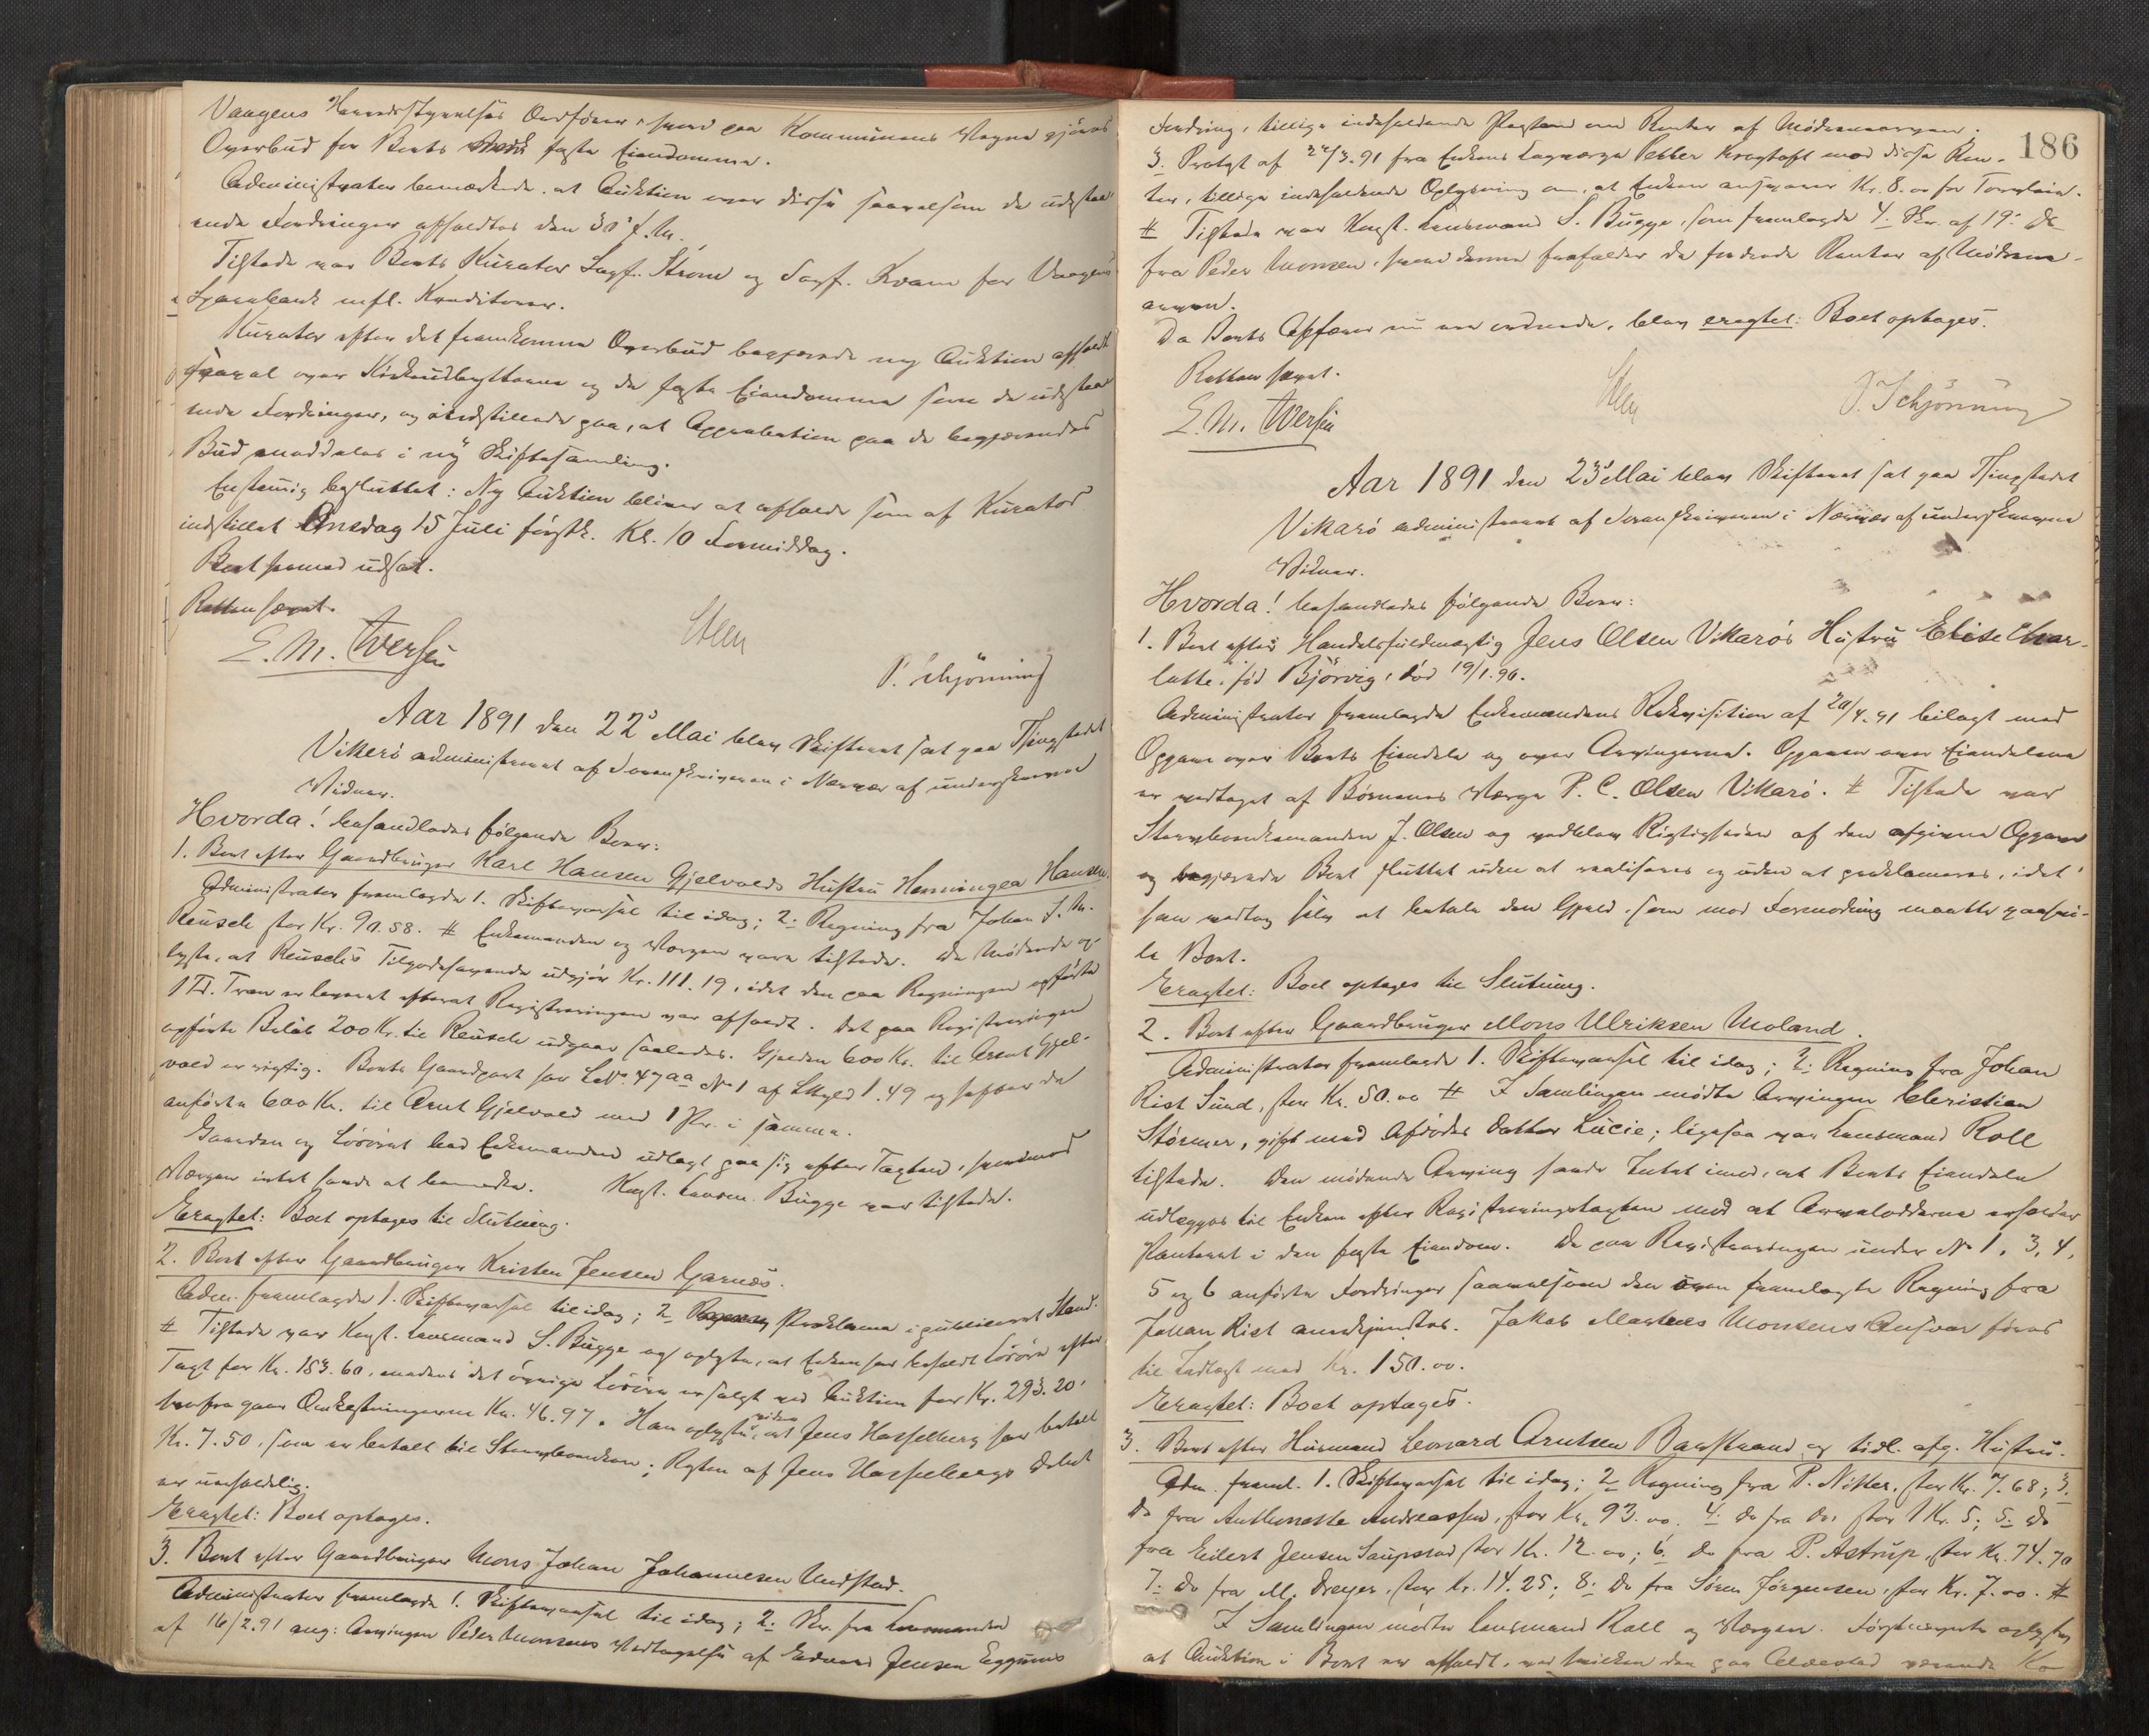 Vaagens Herredsstyrelses Ordfører, hvori paa Kommunens Vegne gjøres
Overbud for Boets faste Eiendomme.
Administrator bemærkede, at Auktion over disse saavelsom de udstaa-
ende Fordringer afholdtes den 30' f. M.
Tilstede var Boets Kurator Sagf. Strøm og Sagf. Kvam for Vaagens
Sparebank mfl. Kreditorer.
Kurator efter det fremkomne Overbud begjærede ny Auktion afholdt
saavel over Fiskeudbytterne og de faste Eiendomme som de udstaa-
ende Fordringer, og indstillede paa, at Approbation paa de begjærendes
Bud meddeles i ny Skiftesamling.
Enstemmig besluttet: Ny Auktion bliver at afholde som af Kurator
indstillet Onsdag 15 Juli førstk. Kl. 10 Formiddag.
Boet hermed udsat.
Retten hævet.
E. M. Iversen Steen P. Schjønning
Aar 1891 den 22' Mai blev Skifteret sat paa Thingstedet
Vikerö administreret af Sorenskriveren i Nærvær af underskrevne
Vidner.
Hvorda! behandledes følgende Boer:
1. Boet efter Gaardbruger Karl Hansen Gjelvolds Hustru Henningea Hansen.
Administrator fremlagde 1. Skiftevarsel til idag; 2. Regning fra Johan S. M.
Reusch stor Kr. 90.58. # Enkemanden og Vergen vare tilstede. De Mødende op-
lyste, at Reusch's Tilgodehavende udgjør Kr. 111.19, idet den paa Regningen opførte
1 Td. Tran er leveret efterat Registreringen var afholdt. Det paa Registreringen
opførte Beløb 200 Kr. til Reusch udgaar saaledes. Gjælden 600 Kr. til Arent Gjel-
vold er rigtig. Boets Gaardpart har L.No. 47aa No 1 af Skyld 1.49 og hefter de
anførte 600 Kr. til Arnt Gjelvold med 1 Pr. i samme.
Gaarden og Løsøret bad Enkemanden udlagt paa sig efter Taxten, hvorimod
Vergen intet havde at bemerke. Kgst. Lensm. Bugge var tilstede.
Eragtet: Boet optages til Slutning.
2. Boet efter Gaardbruger Kristen Jensen Garnæs.
Adm. fremlagde 1. Skiftevarsel til idag; 2. Proklama i publiceret Stand.
# Tilstede var Kgst. Lensmand S. Bugge og oplyste, at Enken har beholdt Løsøre efter
Taxt for Kr. 153.60, medens det øvrige Løsøre er solgt ved Auktion for Kr. 293.20,
herfra gaar Omkostningerne Kr. 46.97. Han oplyste viden at Jens Hasselberg har betalt
Kr. 7.50, som er betalt til Stervboenken; Resten af Jens Hasselbergs Debet
er uerholdelig.
Eragtet: Boet optages.
3. Boet efter Gaardbruger Mons Johan Johannesen Undstad.
Administrator fremlagde 1. Skiftevarsel til idag; 2. Skr. fra Lensmanden
af 16/2.91 ang: Arvingen Peder Monsens Vedtagelse af Edvard Jensen Eggums
186
Fordring, tillige indeholdende Paastand om Renter af Mødrenearven.
3. Protest af 24/3.91 fra Enkens Lagverge Petter Kregtoft mod disse Ren-
ter, tillige indeholdende Oplysning om, at Enken ansvarer Kr. 8.00 for
# Tilstede var Kgst. Lensmand S. Bugge, som fremlagde 4. Skr. af 19. ds
fra Peder Monsen, hvori denne frafalder de fordrede Renter af Mødrene-
arven.
Da Boets Affærer nu ere ordnede, blev eragtet: Boet optages.
Retten hævet.
E. M. Iversen Steen P. Schjønning
Aar 1891 den 23' Mai blev Skifteret sat paa Thingstedet
Vikarö administreret af Sorenskriveren i Nærvær af underskrevne
Vidner.
Hvorda! behandledes følgende Boer:
1. Boet efter Handelsfuldmægtig Jens Olsen Vikarös Hustru Elise Char-
lotte, fød Bjørvig, død 19/1.90.
Administrator fremlagde Enkemandens Rekvisition af 20/4.91 bilagt med
Opgave over Boets Eiendele og over Arvingerne. Opgaven over Eiendelene
er vedtaget af Børnenes Verge P. C. Olsen Vikarö. # Tilstede var
Stervboenkemanden J. Olsen og vedblev Rigtigheden af den afgivne Opgave
og begjærede Boet sluttet uden at realiseres og uden at proklameres, idet
han vedtog selv at betale den Gjæld, som mod Formodning maatte paahvi-
le Boet.
Eragtet: Boet optages til Slutning.
2. Boet efter Gaardbruger Mons Ulriksen Moland.
Administrator fremlagde 1. Skiftevarsel til idag; 2. Regning fra Johan
Rist Sund, stor Kr. 50.00 # I Samlingen mødte Arvingen Christian
Størmer, gift med Afdødes Datter Lucie; ligesaa var Lensmand Roll
tilstede. Den mødende Arving havde Intet imod, at Boets Eiendele
udlægges til Enken efter Registreringstaxten mod at Arvelodderne erholder
Panteret i den faste Eiendom. De paa Registreringen under No 1, 3, 4,
5 og 6 anførte Fordringer saavelsom den oven fremlagte Regning fra
Johan Rist anerkjendtes. Jakob Martines Monsens Ansvar føres
til Indtægt med Kr. 150.00.
Eragtet: Boet optages.
3. Boet efter Husmand Leonard Arntsen Barstrand og tidl. afg. Hustru.
Adm. freml. 1. Skiftevarsel til idag; 2. Regning fra P. Nitter, stor Kr. 7.68; 3.
do fra Anthonette Andreassen, stor Kr. 93.00. 4. do fra do, stor Kr. 5; 5. do
fra Eilert Jensen Saupstad stor Kr. 12.00; 6. do fra P. Astrup, stor Kr. 74.70
7. do fra M. Dreyer, stor Kr. 14.25; 8. do fra Søren Jørgensen, stor Kr. 7.00. #
I Samlingen mødte Lensmand Roll og Vergen. Førstnævnte oplyste,
at Auktion i Boet er afholdt, ved hvilken den paa værende Ko